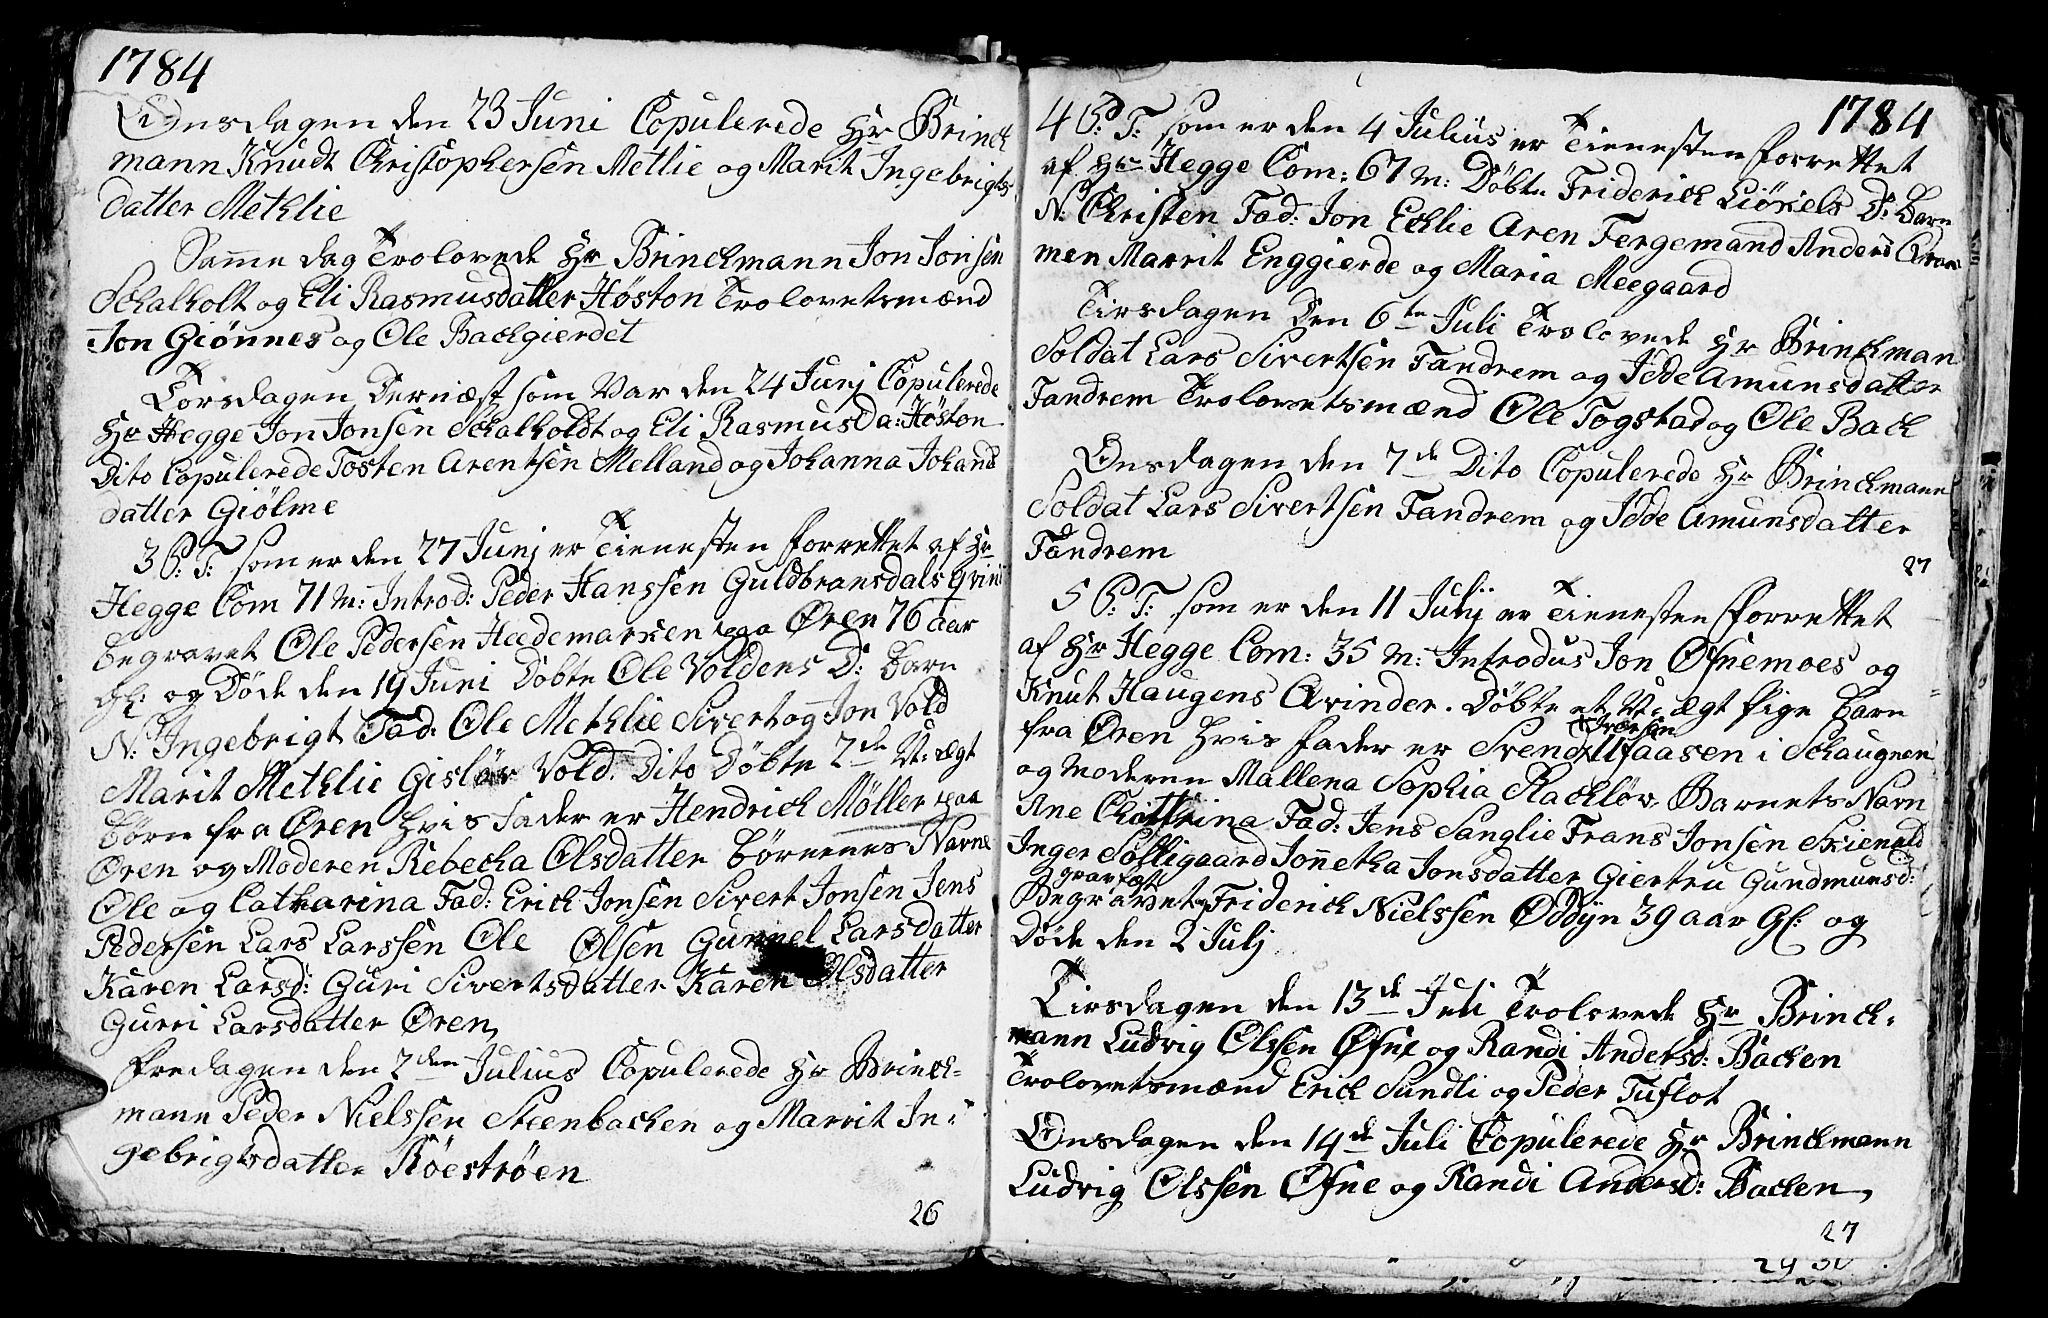 1784
Onsdagen den 23 Juni Copulerede Hr Brinck
mann Knudt Christophersen Metlie og Marit Ingebrigts
datter Methlie
Samme dag Trolovede Hr Brinckmann Jon Jonsen
Schalholt og Eli Rasmusdatter Høston Trolovetsmænd
Jon Giönnes og Ole Bachgierdet
Torsdagen Dernæst som Var den 24 Junj Copulerede
Hr Hegge Jon Jonsen Schalholdt og Eli Rasmus Da: Höston
Dito Copulerede Tosten Arentsen Melland og Johanna Johans
datter Giölme
3 S: T: som er den 27 Junj er Tienesten forrettet af Hr
Hegge Com 71 M: Introd: Peder Hanssen Guldbransdals qvin
begravet Ole Pedersen Hedemarken paa Øren 76 aar
Gl: og Døde den 19 Juni Döbte Ole Voldens D: barn
N: Ingebrigt Fad: Ole Methlie Sivert og Jon Vold
Marit Methlie Gislör Vold. Dito Döbte 2de U: ægt
börn fra Øren hvis fader er Hendrich Möller paa
Øren og Moderen Rebecha Olsdatter Børnenes Navne
Ole og Catharina Fad: Erich Jonsen Sivert Jonsen Jens
Pedersen Lars Larssen Ole Olsen Gunnel Larsdatter
Karen Larsd: Guri Sivertsdatter Karen Olsdatter
Gurri Larsdatter Øren,
fredagen den 2den Julius Copulerede Hr Brinch-
mann Peder Nielssen Steenbachen og Marrit In:
gebrigtsdatter Röeströen
26
1784
4 S: T: som er den 4 Julius er Tienesten forrettet
af Hr Hegge Com: 67 M: Döbte Friderich Liöriels D: barn
N: Christen Fad: Jon Echlie Aren Fergemand Anders
men Marrit Enggierde og Maria Meegaard
Tirsdagen Den 6te Juli Trolovede Hr Brinckman
Soldat Lars Sivertsen Fandrem og Jdde Amunsdatter
Fandrem Trolovetsmænd Ole Togstad og Ole Bach
Onsdagen den 7de Dito Copulerede Hr Brinckmann
Soldat Lars Sivertsen Fandrem og Jdde Amunsdatter
Fandrem
27
5 S: T: som er den 11 Julij er Tienesten forrettet
af Hr Hegge Com: 35 M: Introdus Jon Øfnemoes og
Knut Haugens Qvinder. Döbte et U: ægt pige barn
fra Øren hvis fader er Svend Ulfaasen i Schaugnen
Iversen
og moderen Mallena Sophia Rachløv, Barnets Navn
Ane Chattrina Fad: Jens Sanglie Frans Jonsen Skienald
Inger Solligaard Jonnetha Jonsdatter Giertru Gundmunsd:
Begravet Friderich Nielssen Øddyn 39 aar Gl: og
Döde den 2 Julj
Tirsdagen den 13de Juli Trolovede Hr Brinck-
mann Ludvig Olssen Øfne og Randi Andersd: Bachen
Trolovetsmænd Erich Sundli og Peder Tuflot
Onsdagen den 14de Juli Copulerede Hr Brinckmann
Ludvig Olssen Øfne og Randi Andersd: Bachen,
27